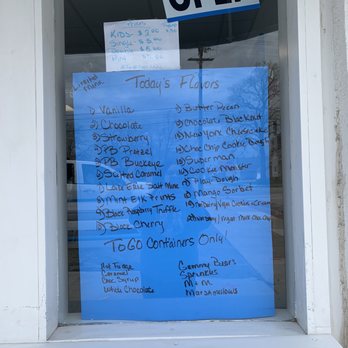 OPEN
Kids $3.00
Limited Menu
Today's Flavors
1) Vanilla
2) Chocolate
3) Strawberry
4) PB Pretzel
5) PB Buckeye
6) Salted Caramel
7) Lake Erie Salt Mine
8) Mint Elk Prints
9) Black Raspberry Truffle
10) Black Cherry
Butter Pecan
Chocolate
New York Cheesecake
Choc Chip Cookie Dough
Superman
Cookie Monster
Play Dough
Mango Sorbet
Non Dairy Vegan Cookies n Cream
To Go Containers Only!
Hot Fudge
Caramel
Choc Syrup
White Chocolate
Gummy Bears
Sprinkles
M+M
Marshmellows